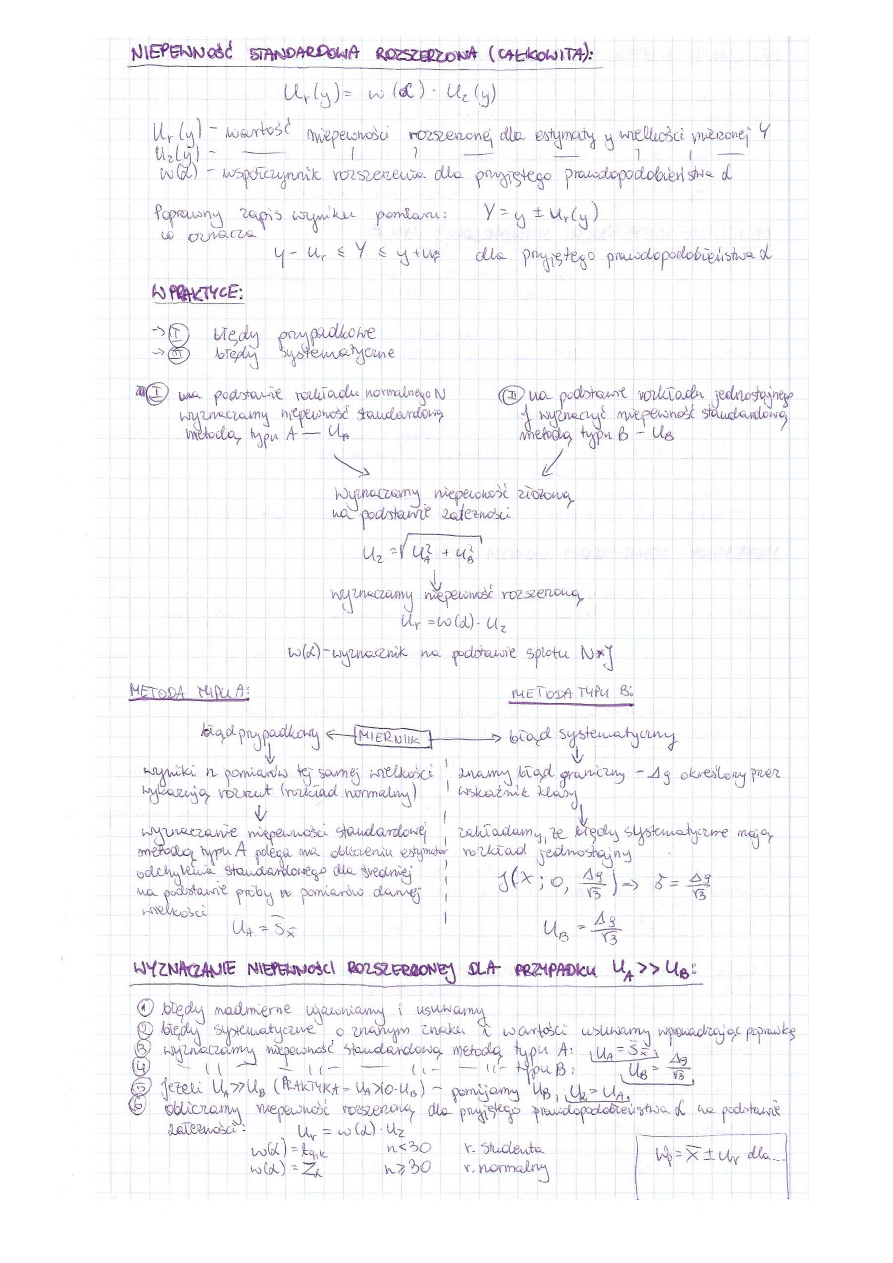 NIEPEWNOŚĆ STANDARDOWA ROZSZERZONA (CAŁKOWITA):
Ur(y) = w(α) · Uz(y)
Ur(y) – wartość niepewności rozszerzonej dla estymaty y wielkości mierzonej Y
Uz(y) –
w(α) – współczynnik rozszerzenia dla przyjętego prawdopodobieństwa α
Poprawny zapis wyniku pomiaru: Y = y ± Ur(y)
co oznacza
y – Ur ≤ Y ≤ y + Ur dla przyjętego prawdopodobieństwa α
W PRAKTYCE:
→ I błędy przypadkowe
→ II błędy systematyczne
I na podstawie rozkładu normalnego N
wyznaczamy niepewność standardową
metodą typu A — UA
II na podstawie rozkładu jednostajnego
J wyznaczyć niepewność standardową
metodą typu B – UB
wyznaczamy niepewność złożoną
na podstawie zależności
Uz = √(UA² + UB²)
wyznaczamy niepewność rozszerzoną
Ur = w(α) · Uz
w(α) – wyznacznik na podstawie splotu N*J
METODA TYPU A: METODA TYPU B:
błąd przypadkowy ← MIERNIK → błąd systematyczny
wyniki n pomiarów tej samej wielkości
wykazują rozrzut (rozkład normalny)
wyznaczanie niepewności standardowej
metodą typu A polega na obliczeniu estymator
odchylenia standardowego dla średniej
na podstawie próby n pomiarów danej
wielkości
UA = S̄x̄
znamy błąd graniczny – Δg określony przez
wskaźnik klasy
zakładamy, że błędy systematyczne mają
rozkład jednostajny
J(x; 0, Δg/√3) ⇒ δ = Δg/√3
UB = Δg/√3
WYZNACZANIE NIEPEWNOŚCI ROZSZERZONEJ DLA PRZYPADKU UA >> UB:
1 błędy nadmierne ujawniamy i usuwamy
2 błędy systematyczne o znanym znaku i wartości usuwamy wprowadzając poprawkę
3 wyznaczamy niepewność standardową metodą typu A: UA = S̄x̄
4 – 〃 – 〃 – 〃 – 〃 typu B: UB = Δg/√3
5 jeżeli UA >> UB (PRAKTYKA – UA > 10·UB) – pomijamy UB, Uz = UA
6 obliczamy niepewność rozszerzoną dla przyjętego prawdopodobieństwa α na podstawie
zależności: Ur = w(α) · Uz
w(α) = tα,k n < 30 r. studenta
w(α) = Zα n ≥ 30 r. normalny
Wp = x̄ ± Ur dla...